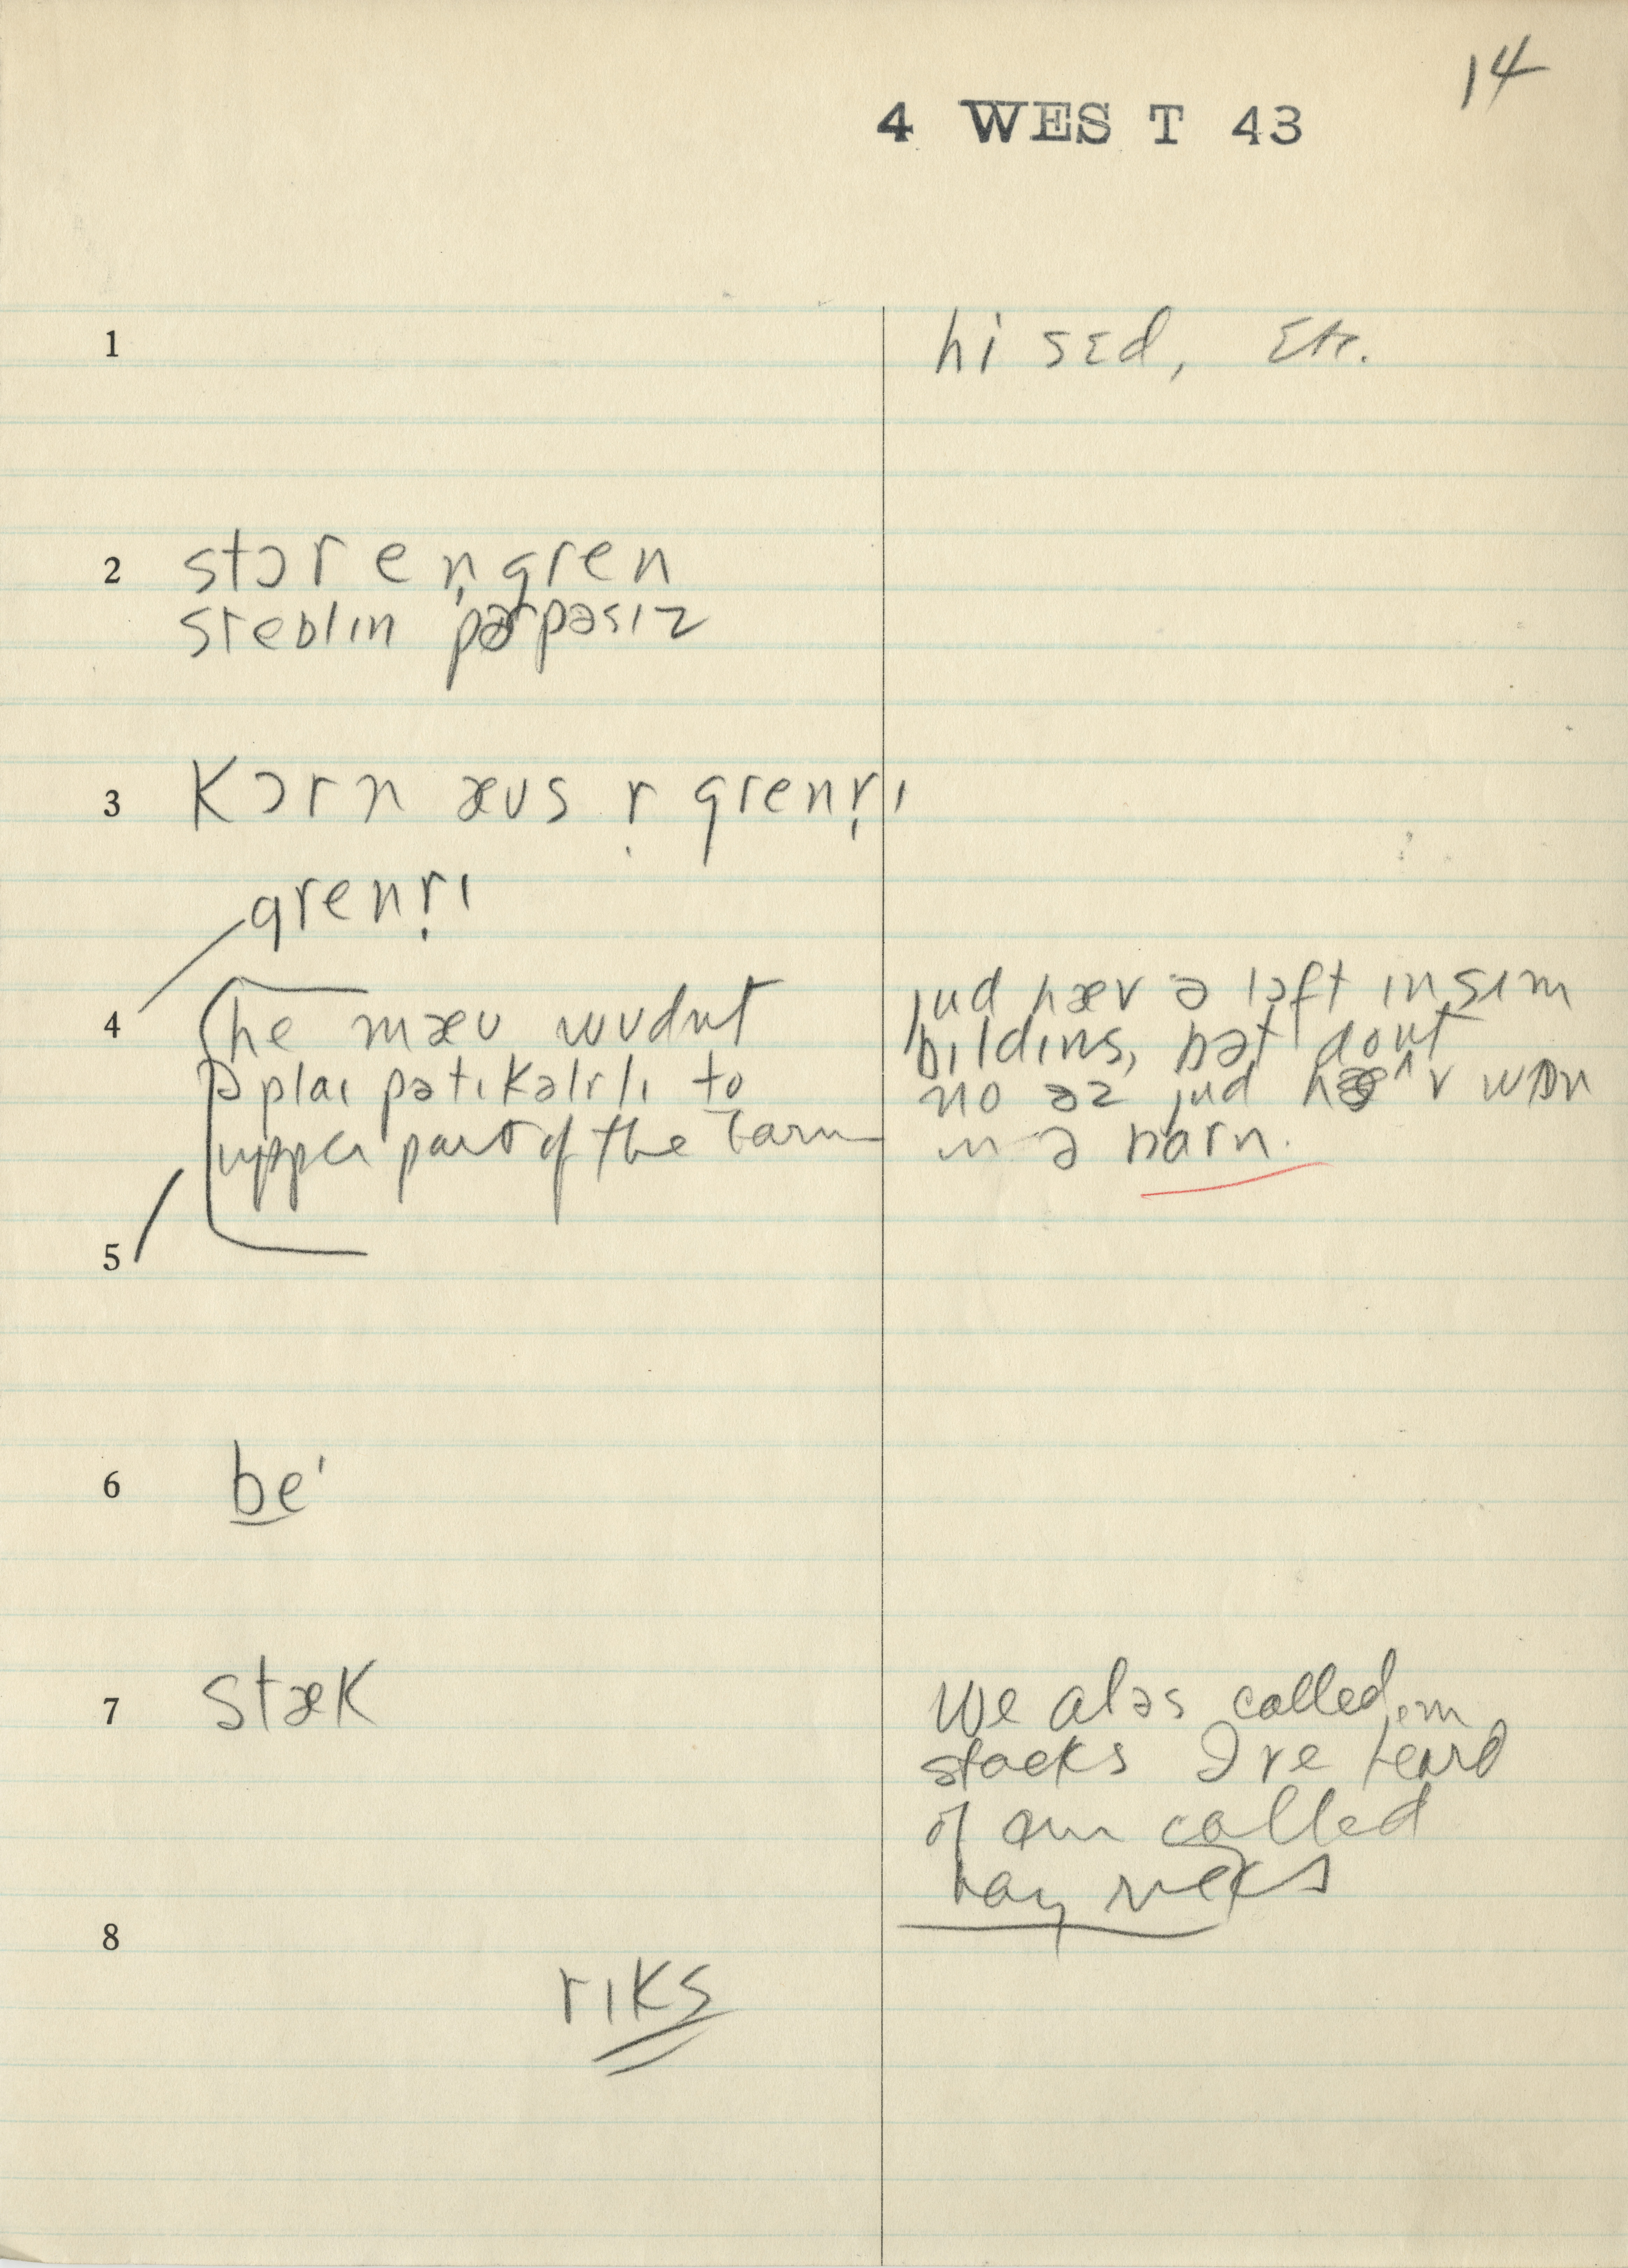 14
4 WES T 43
1 hi sɛd, Etc.
2 stɔr en̩ gren
steblin pərpəsɪz
3 Kɔrn æus r̩ grenr̩ɪ
grenr̩ɪ
4 he mæu wudnt
əplaɪ pətɪkəlrlɪ to
upper part of the barn
jud hæv ə lɔft in sɪm
bɪldɪns, bət dont
no əz jud hæv wɒn
in ə barn.
5
6 be'
7 stæk
We alɔs called em
stacks I've heard
of em called
hay ricks
8
rɪks